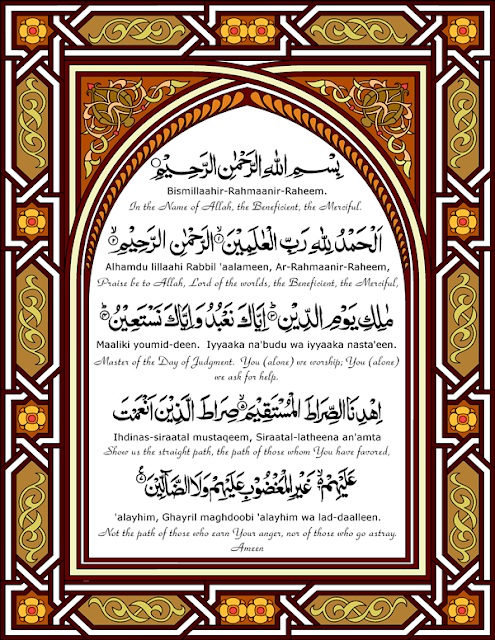 بِسْمِ اللهِ الرَّحْمٰنِ الرَّحِيْمِ
Bismillaahir-Rahmaanir-Raheem.
In the Name of Allah, the Beneficient, the Merciful.
اَلْحَمْدُ لِلّٰهِ رَبِّ الْعٰلَمِيْنَ ۙ۱ الرَّحْمٰنِ الرَّحِيْمِ ۙ۲
Alhamdu lillaahi Rabbil 'aalameen, Ar-Rahmaanir-Raheem,
Praise be to Allah, Lord of the worlds, the Beneficient, the Merciful,
مٰلِكِ يَوْمِ الدِّيْنِ ۳ اِيَّاكَ نَعْبُدُ وَاِيَّاكَ نَسْتَعِيْنُ ۴
Maaliki youmid-deen. Iyyaaka na'budu wa iyyaaka nasta'een.
Master of the Day of Judgment. You (alone) we worship; You (alone)
we ask for help.
اِهْدِنَا الصِّرَاطَ الْمُسْتَقِيْمَ ۙ۵ صِرَاطَ الَّذِيْنَ اَنْعَمْتَ
Ihdinas-siraatal mustaqeem, Siraatal-latheena an'amta
Show us the straight path, the path of those whom You have favored,
عَلَيْهِمْ ۙ۶ غَيْرِ الْمَغْضُوْبِ عَلَيْهِمْ وَلَا الضَّآلِّيْنَ
'alayhim, Ghayril maghdoobi 'alayhim wa lad-daalleen.
Not the path of those who earn Your anger, nor of those who go astray.
Ameen